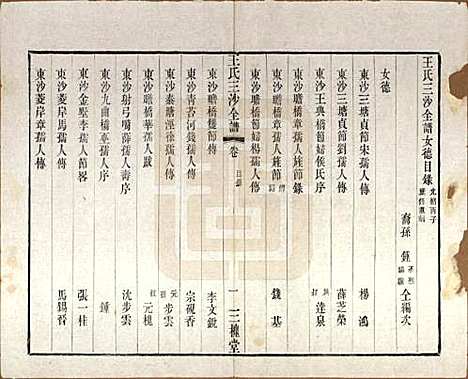 王氏三沙全譜女德目錄
裔孫
仝編次
女德
東沙三塘貞節宋孺人傳 楊鴻
東沙三塘貞節劉孺人傳 薛芝榮
東沙王典橋節婦侯氏序 達泉
東沙瞻橋章孺人旌節錄
東沙瞻橋節婦楊孺人旌節 錢基
東沙瞻橋雙節傳 李文銳
王氏三沙全譜
卷
目錄
一
三槐堂
東沙青苔河錢孺人傳 宗硯香
東沙泰塘涇徐孺人傳 步雲
東沙瞻橋華孺人跋 元槐
東沙射弓嘴薛孺人壽序 沈步雲
東沙九曲橋章孺人序 鍾
東沙金墅李孺人節略 張一桂
東沙菱岸馬孺人傳 馬錫晉
東沙菱岸章孺人傳